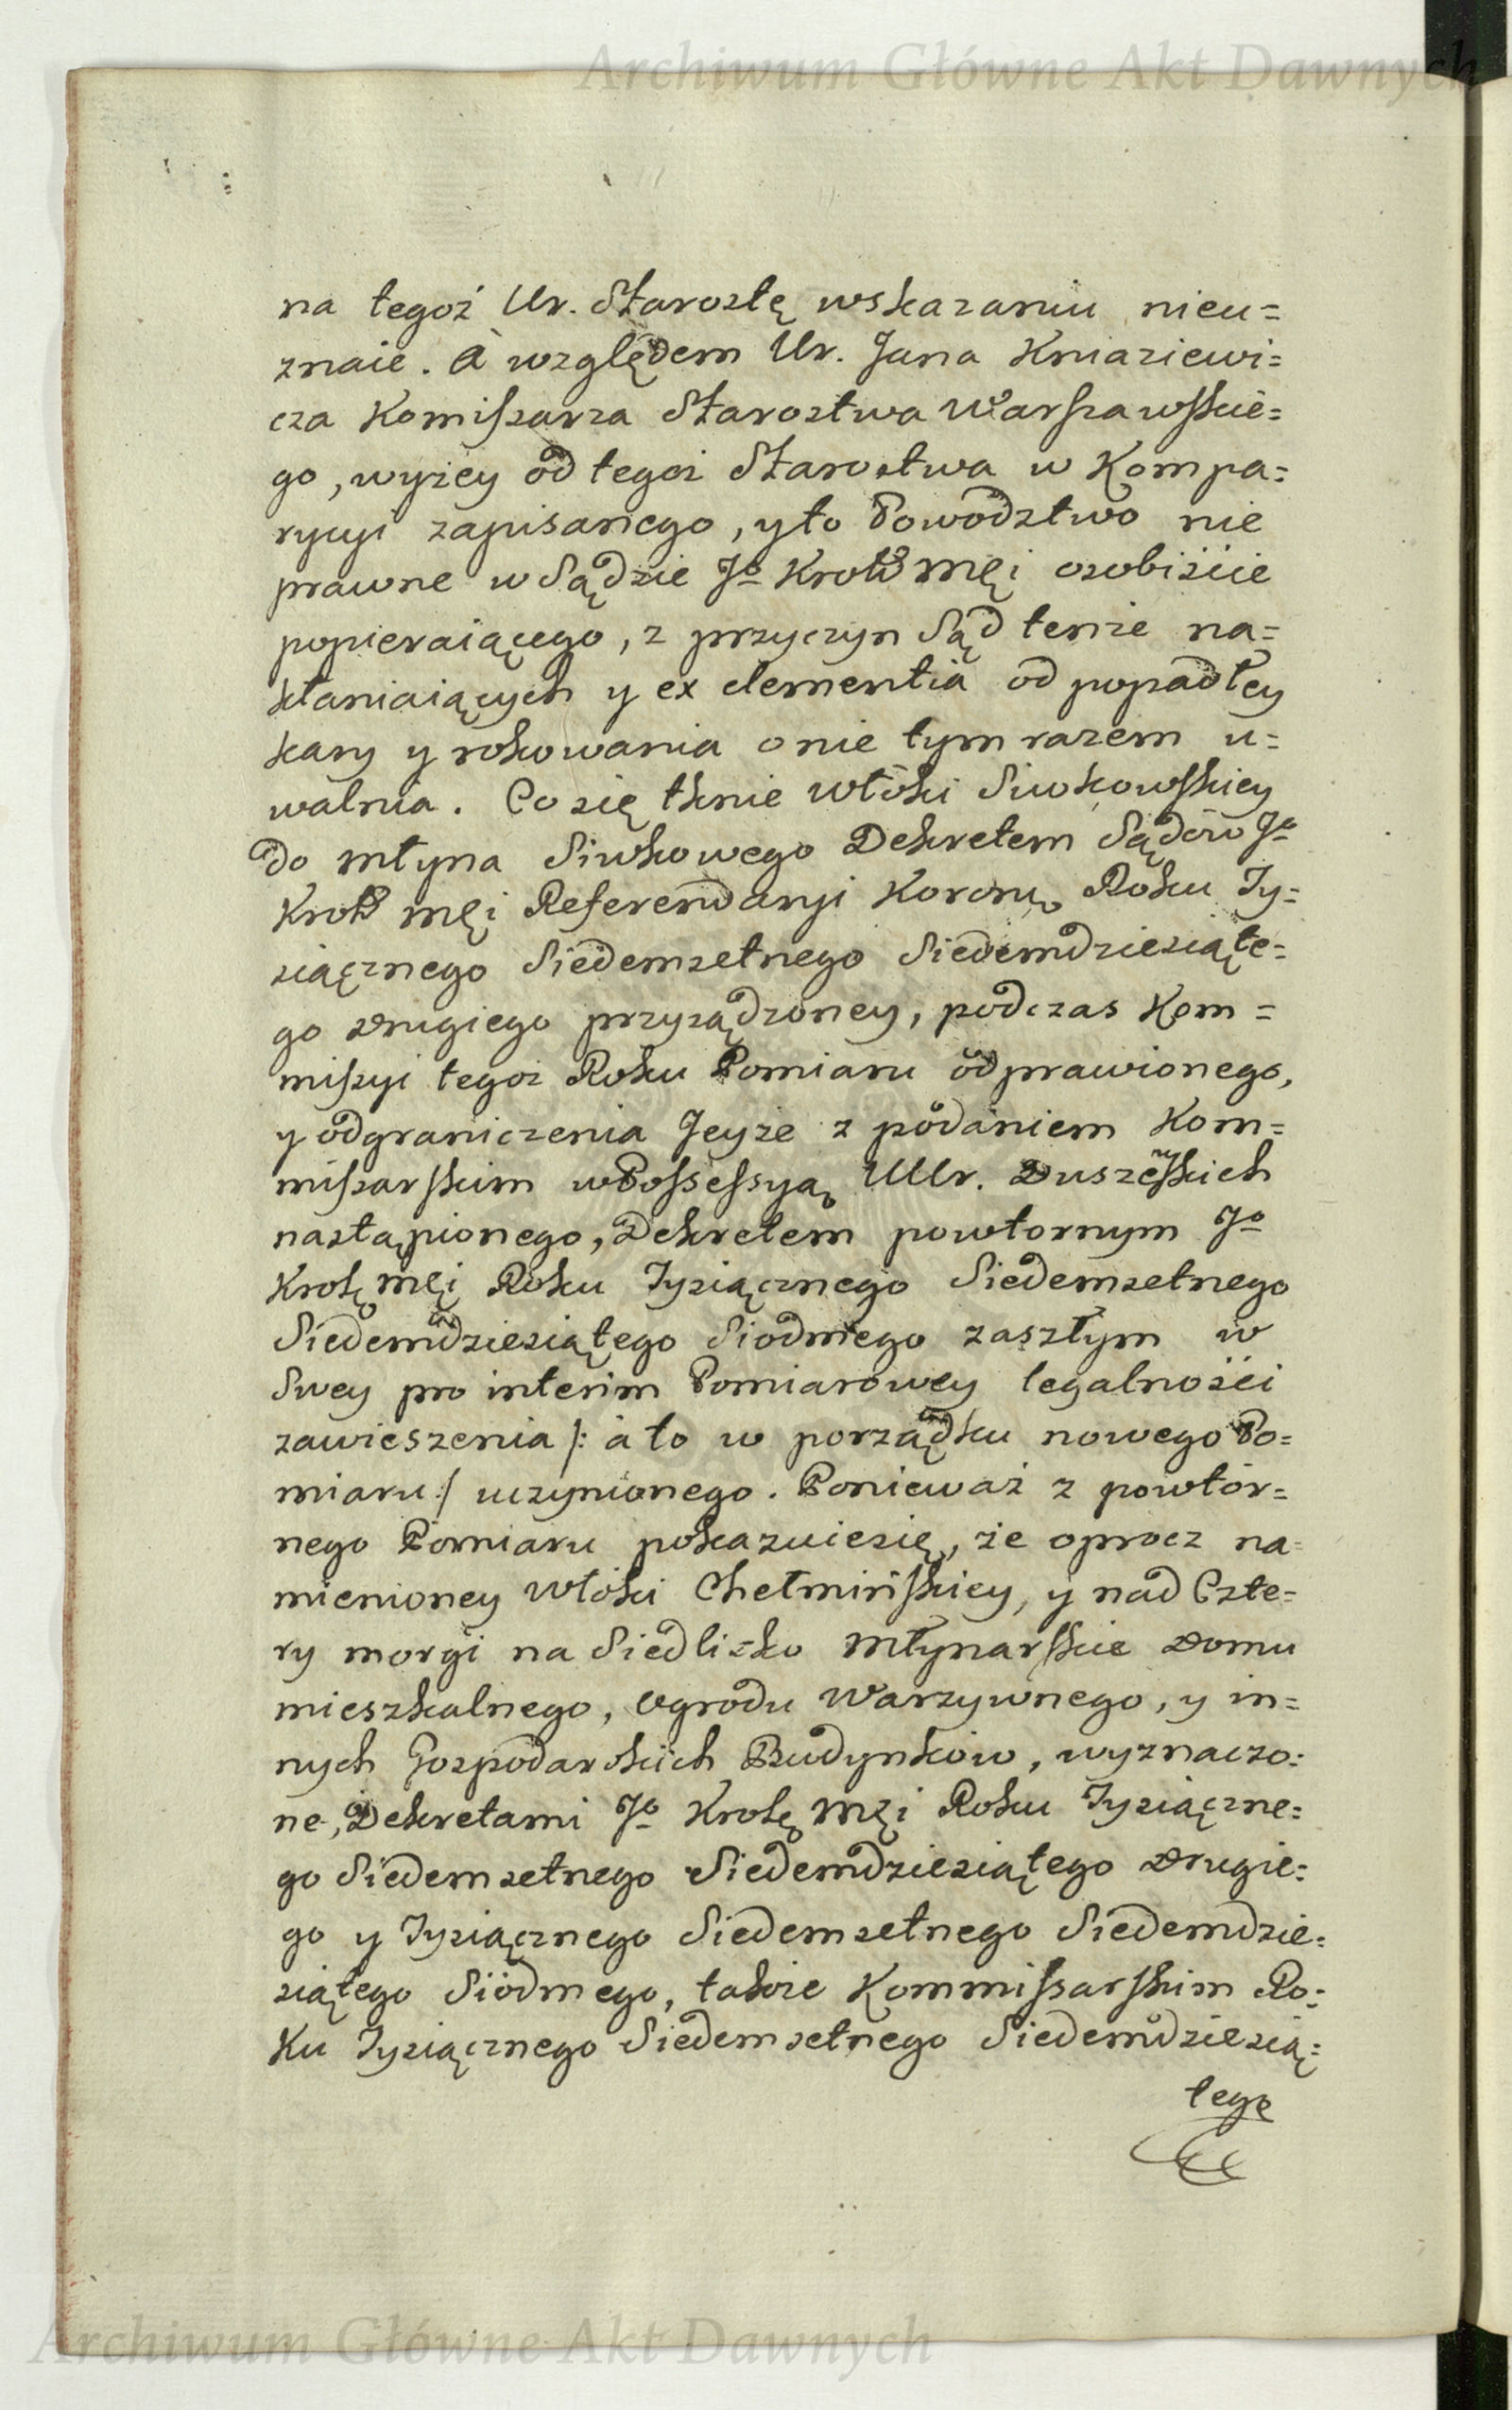 Archiwum Główne Akt Dawnych
na tegoż Ur. Starostę wskazaniu nieu=
znaie. A względem Ur. Jana Kniaziewi=
cza Komiſsarza Starostwa Warſzawſkie=
go, wyżey od tegoż Starostwa w Kompa=
rycyi zapisanego, y to Powodztwo nie
prawne w Sądzie Jo Krolę Męi osobiście
popieraiącego, z przyczyn Sąd tenże na=
kłaniaiących y ex clementia od popadłey
kary y rokowania o nie tym razem u=
walnia. Co się tknie włóki Siwkowſkiey
do młyna Siwkowego Dekretem Sądów Jo
Krolę Męi Referendaryi Koronę Roku Ty=
siącznego Siedemsetnego Siedemdziesiąte=
go Drugiego przysądzoney, podczas Kom=
miſsyi tegoż Roku Pomiaru odprawionego,
y odgraniczenia Jeyże z podaniem Kom=
miſsarſkim w Poſseſsyą UUr. Duszeńſkich
nastąpionego, Dekretem powtornym Jo
Krolę Męi Roku Tysiącznego Siedemsetnego
Siedemdziesiątego Siodmego zaszłym w
Swey pro interim Pomiarowey legalności
zawieszenia /: a to w porządku nowego Po=
miaru :/ uczynionego. Ponieważ z powtór=
nego Pomiaru pokazuie się, że oprocz na=
mienioney włóki Chełmińſkiey, y nad Czte=
ry morgi na Siedlisko Młynarſkie Domu
mieszkalnego, Ogrodu Warzywnego, y in=
nych Gospodarskich Budynkow, wyznaczo=
ne, Dekretami Jo Krolę Męi Roku Tysiączne=
go Siedemsetnego Siedemdziesiątego Drugie=
go y Tysiącznego Siedemsetnego Siedemdzie=
siątego Siodmego, także Kommiſsarſkim Ro=
ku Tysiącznego Siedemsetnego Siedemdziesią=
tego
Archiwum Główne Akt Dawnych